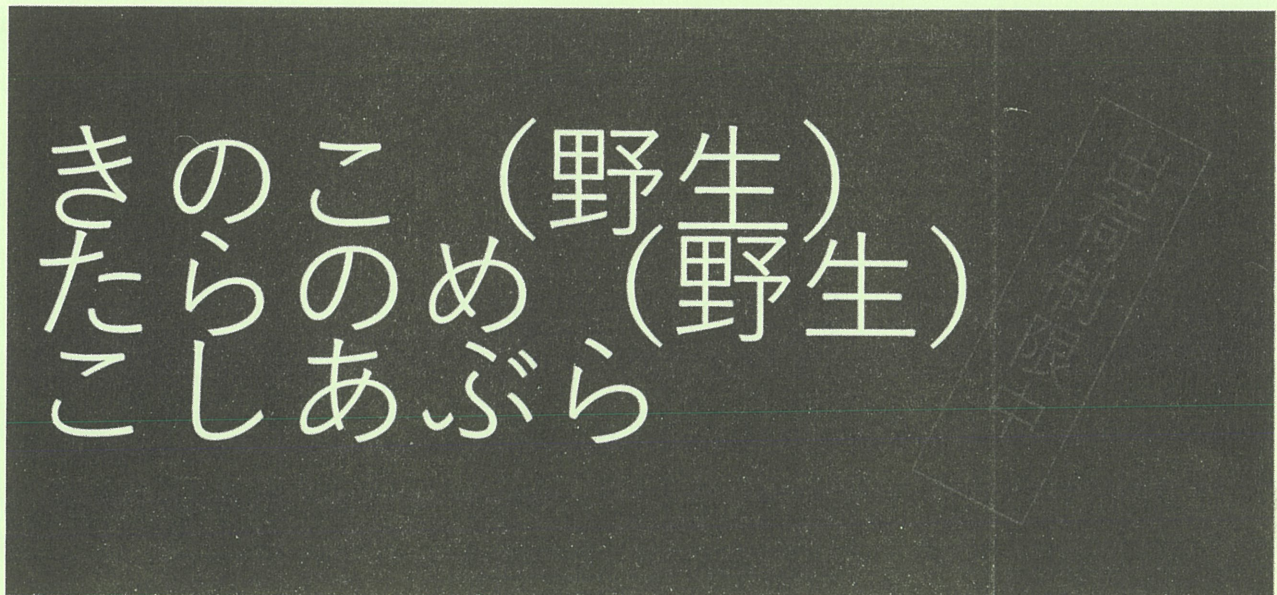 きのこ（野生）
たらのめ（野生）
こしあぶら